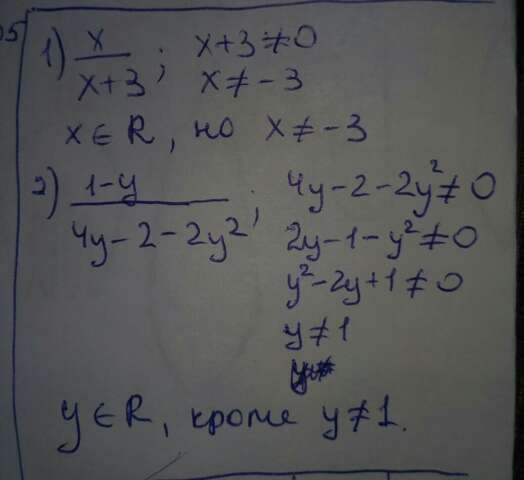 05
1) x/(x+3) ; x+3≠0
x≠-3
x∈R, но x≠-3
2) (1-y)/(4y-2-2y²) ; 4y-2-2y²≠0
2y-1-y²≠0
y²-2y+1≠0
y≠1
y≠
y∈R, кроме y≠1.